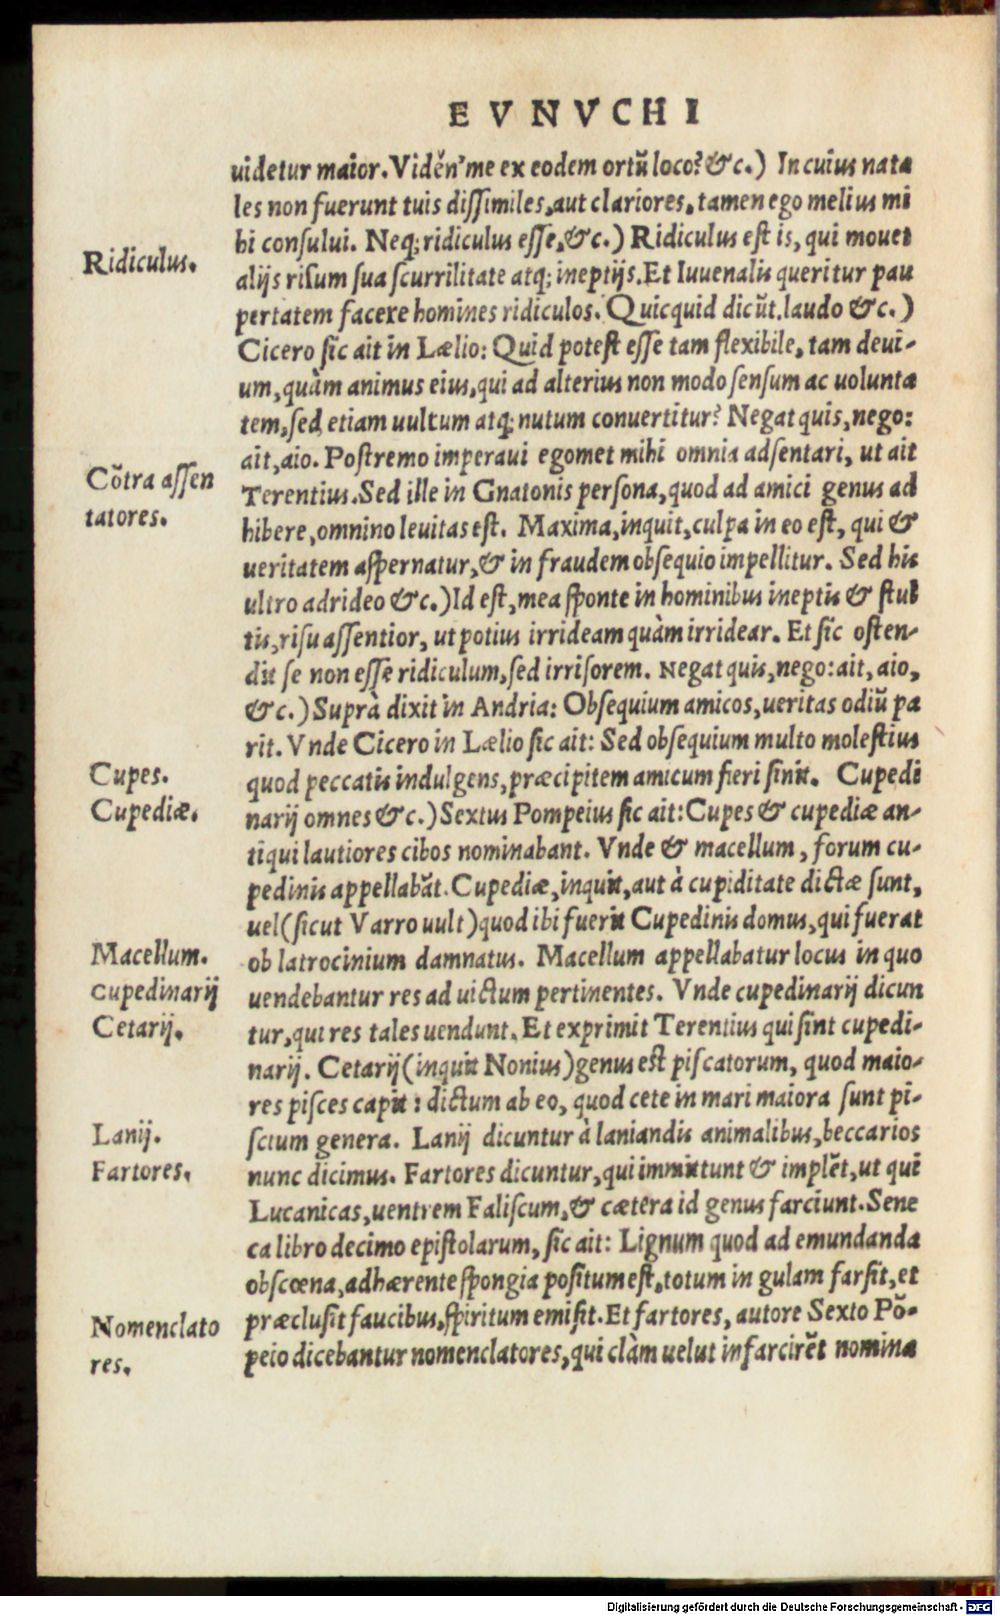 EVNVCHI
uidetur maior. Vidẽn' me ex eodem ortũ loco? &c.) In cuius nata
les non fuerunt tuis dissimiles, aut clariores, tamen ego melius mi
hi consului. Neq; ridiculus esse, &c.) Ridiculus est is, qui mouet
Ridiculus.
alijs risum sua scurrilitate atq; ineptijs. Et Iuuenalis queritur pau
pertatem facere homines ridiculos. Quicquid dicũt, laudo &c.)
Cicero sic ait in Lælio: Quid potest esse tam flexibile, tam deui-
um, quàm animus eius, qui ad alterius non modo sensum ac uolunta
tem, sed etiam uultum atq; nutum conuertitur? Negat quis, nego:
ait, aio. Postremo imperaui egomet mihi omnia adsentari, ut ait
Cõtra assen
tatores.
Terentius. Sed ille in Gnatonis persona, quod ad amici genus ad
hibere, omnino leuitas est. Maxima, inquit, culpa in eo est, qui &
ueritatem aspernatur, & in fraudem obsequio impellitur. Sed his
ultro adrideo &c.) Id est, mea sponte in hominibus ineptis & stul
tis, risu assentior, ut potius irrideam quàm irridear. Et sic osten-
dit se non esse ridiculum, sed irrisorem. Negat quis, nego: ait, aio,
&c.) Suprà dixit in Andria: Obsequium amicos, ueritas odiũ pa
rit. Vnde Cicero in Lælio sic ait: Sed obsequium multo molestius
Cupes.
quod peccatis indulgens, præcipitem amicum fieri sinit. Cupedi
Cupediæ.
narij omnes &c.) Sextus Pompeius sic ait: Cupes & cupediæ an-
tiqui lautiores cibos nominabant. Vnde & macellum, forum cu-
pedinis appellabãt. Cupediæ, inquit, aut à cupiditate dictæ sunt,
uel (sicut Varro uult) quod ibi fuerit Cupedinis domus, qui fuerat
Macellum.
ob latrocinium damnatus. Macellum appellabatur locus in quo
Cupedinarij
uendebantur res ad uictum pertinentes. Vnde cupedinarij dicun
Cetarij.
tur, qui res tales uendunt. Et exprimit Terentius qui sint cupedi-
narij. Cetarij (inquit Nonius) genus est piscatorum, quod maio-
res pisces capit: dictum ab eo, quod cete in mari maiora sunt pi-
Lanij.
scium genera. Lanij dicuntur à laniandis animalibus, beccarios
Fartores.
nunc dicimus. Fartores dicuntur, qui immittunt & implẽt, ut qui
Lucanicas, uentrem Faliscum, & cætera id genus farciunt. Sene
ca libro decimo epistolarum, sic ait: Lignum quod ad emundanda
obscœna, adhærente spongia positum est, totum in gulam farsit, et
Nomenclato
res.
præclusit faucibus, spiritum emisit. Et fartores, autore Sexto Põ-
peio dicebantur nomenclatores, qui clàm uelut infarcirẽt nomina
Digitalisierung gefördert durch die Deutsche Forschungsgemeinschaft - DFG